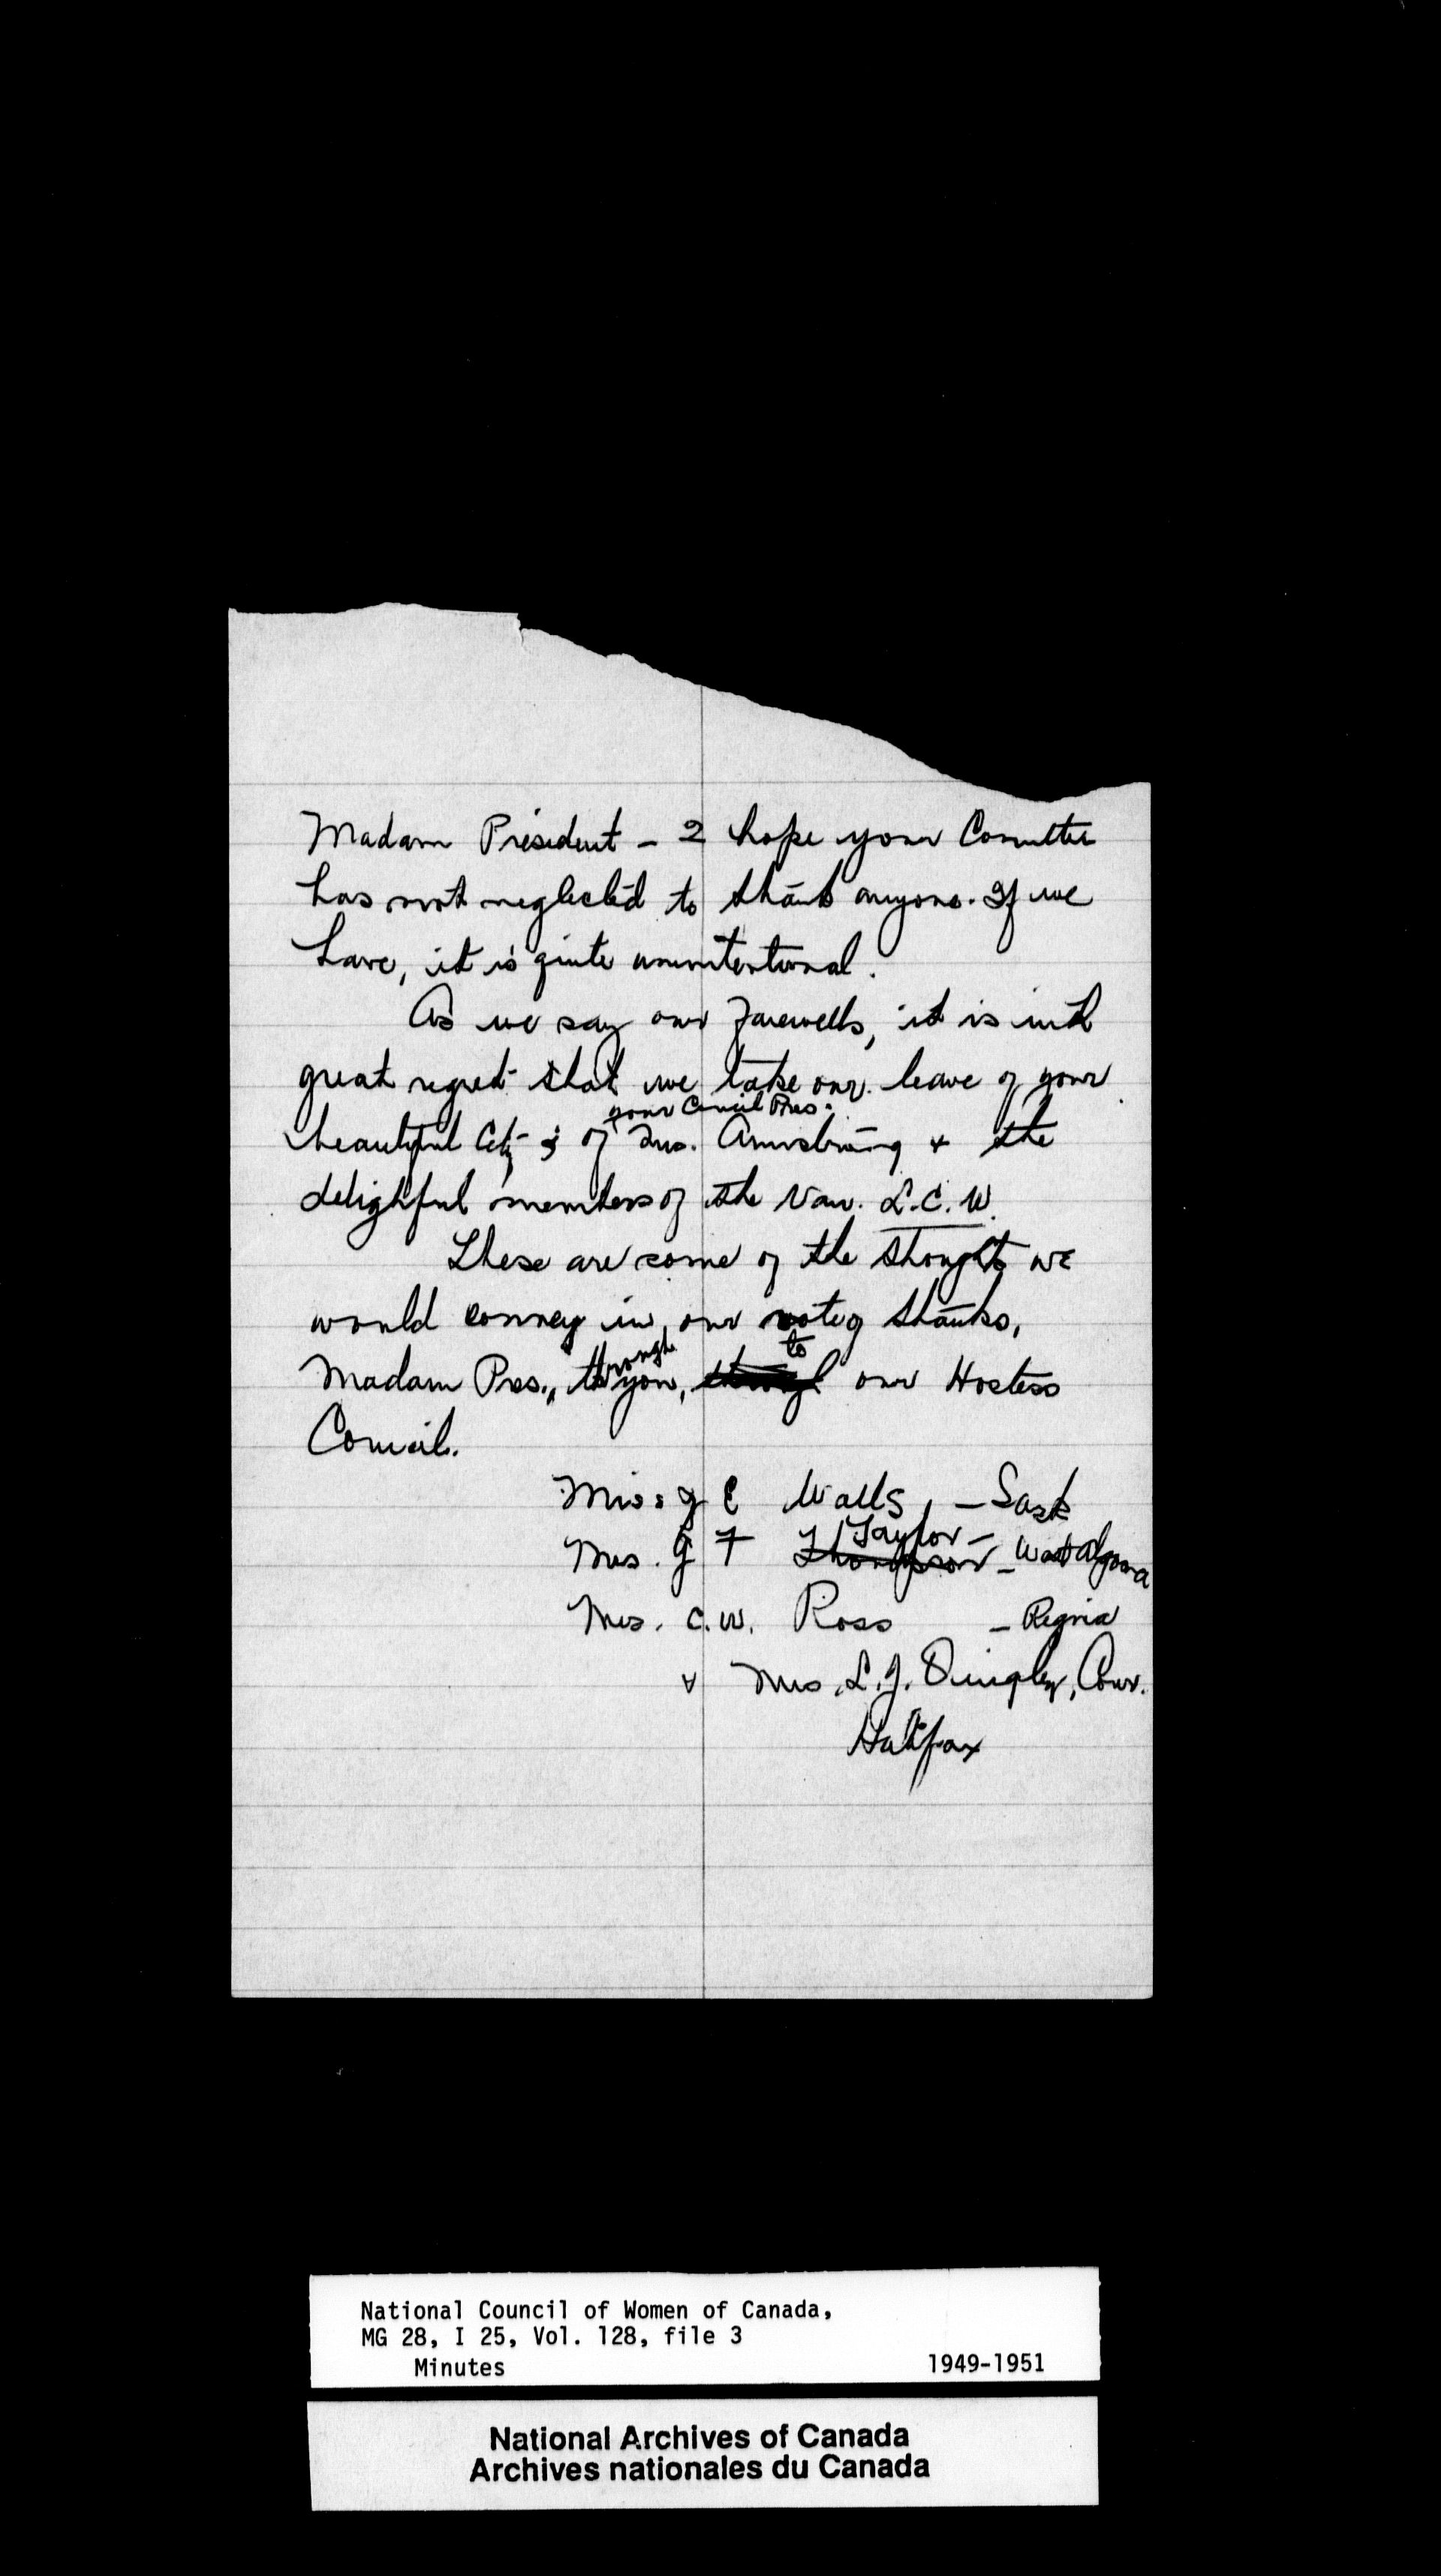 Madam President - I hope your Committee
has not neglected to thank anyone. If we
have, it is quite unintentional.
As we say our farewells, it is with
great regret that we take our leave of your
your Council Pres.
beautiful City & of Mrs. Armstrong & the
delightful members of the Van. L.C.W.
These are some of the thoughts we
would convey in our vote of thanks,
through to
Madam Pres., to you, through our Hostess
Council.
Miss J E Walls, - Sask
Taylor -
Mrs. G F Thompson - West Algoma
Mrs. C.W. Ross - Regina
& Mrs. L.J. Quigley, Conv.
Halifax
National Council of Women of Canada,
MG 28, I 25, Vol. 128, file 3
Minutes 1949-1951
National Archives of Canada
Archives nationales du Canada